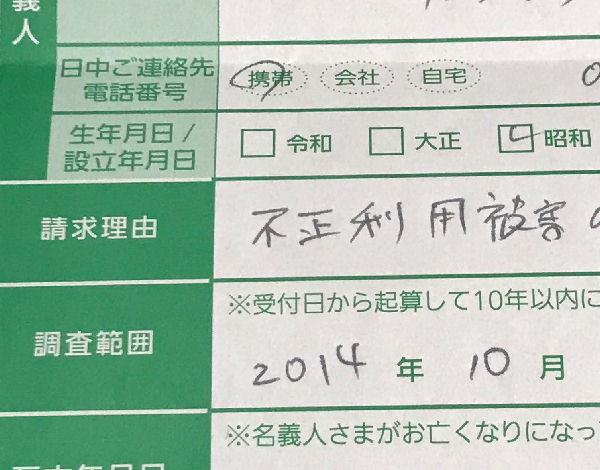 義
人
日中ご連絡先
電話番号
携帯 会社 自宅
生年月日/
設立年月日
令和 大正 昭和
請求理由
不正利用被害
※受付日から起算して10年以内に
調査範囲
2014 年 10 月
※名義人さまがお亡くなりになっ